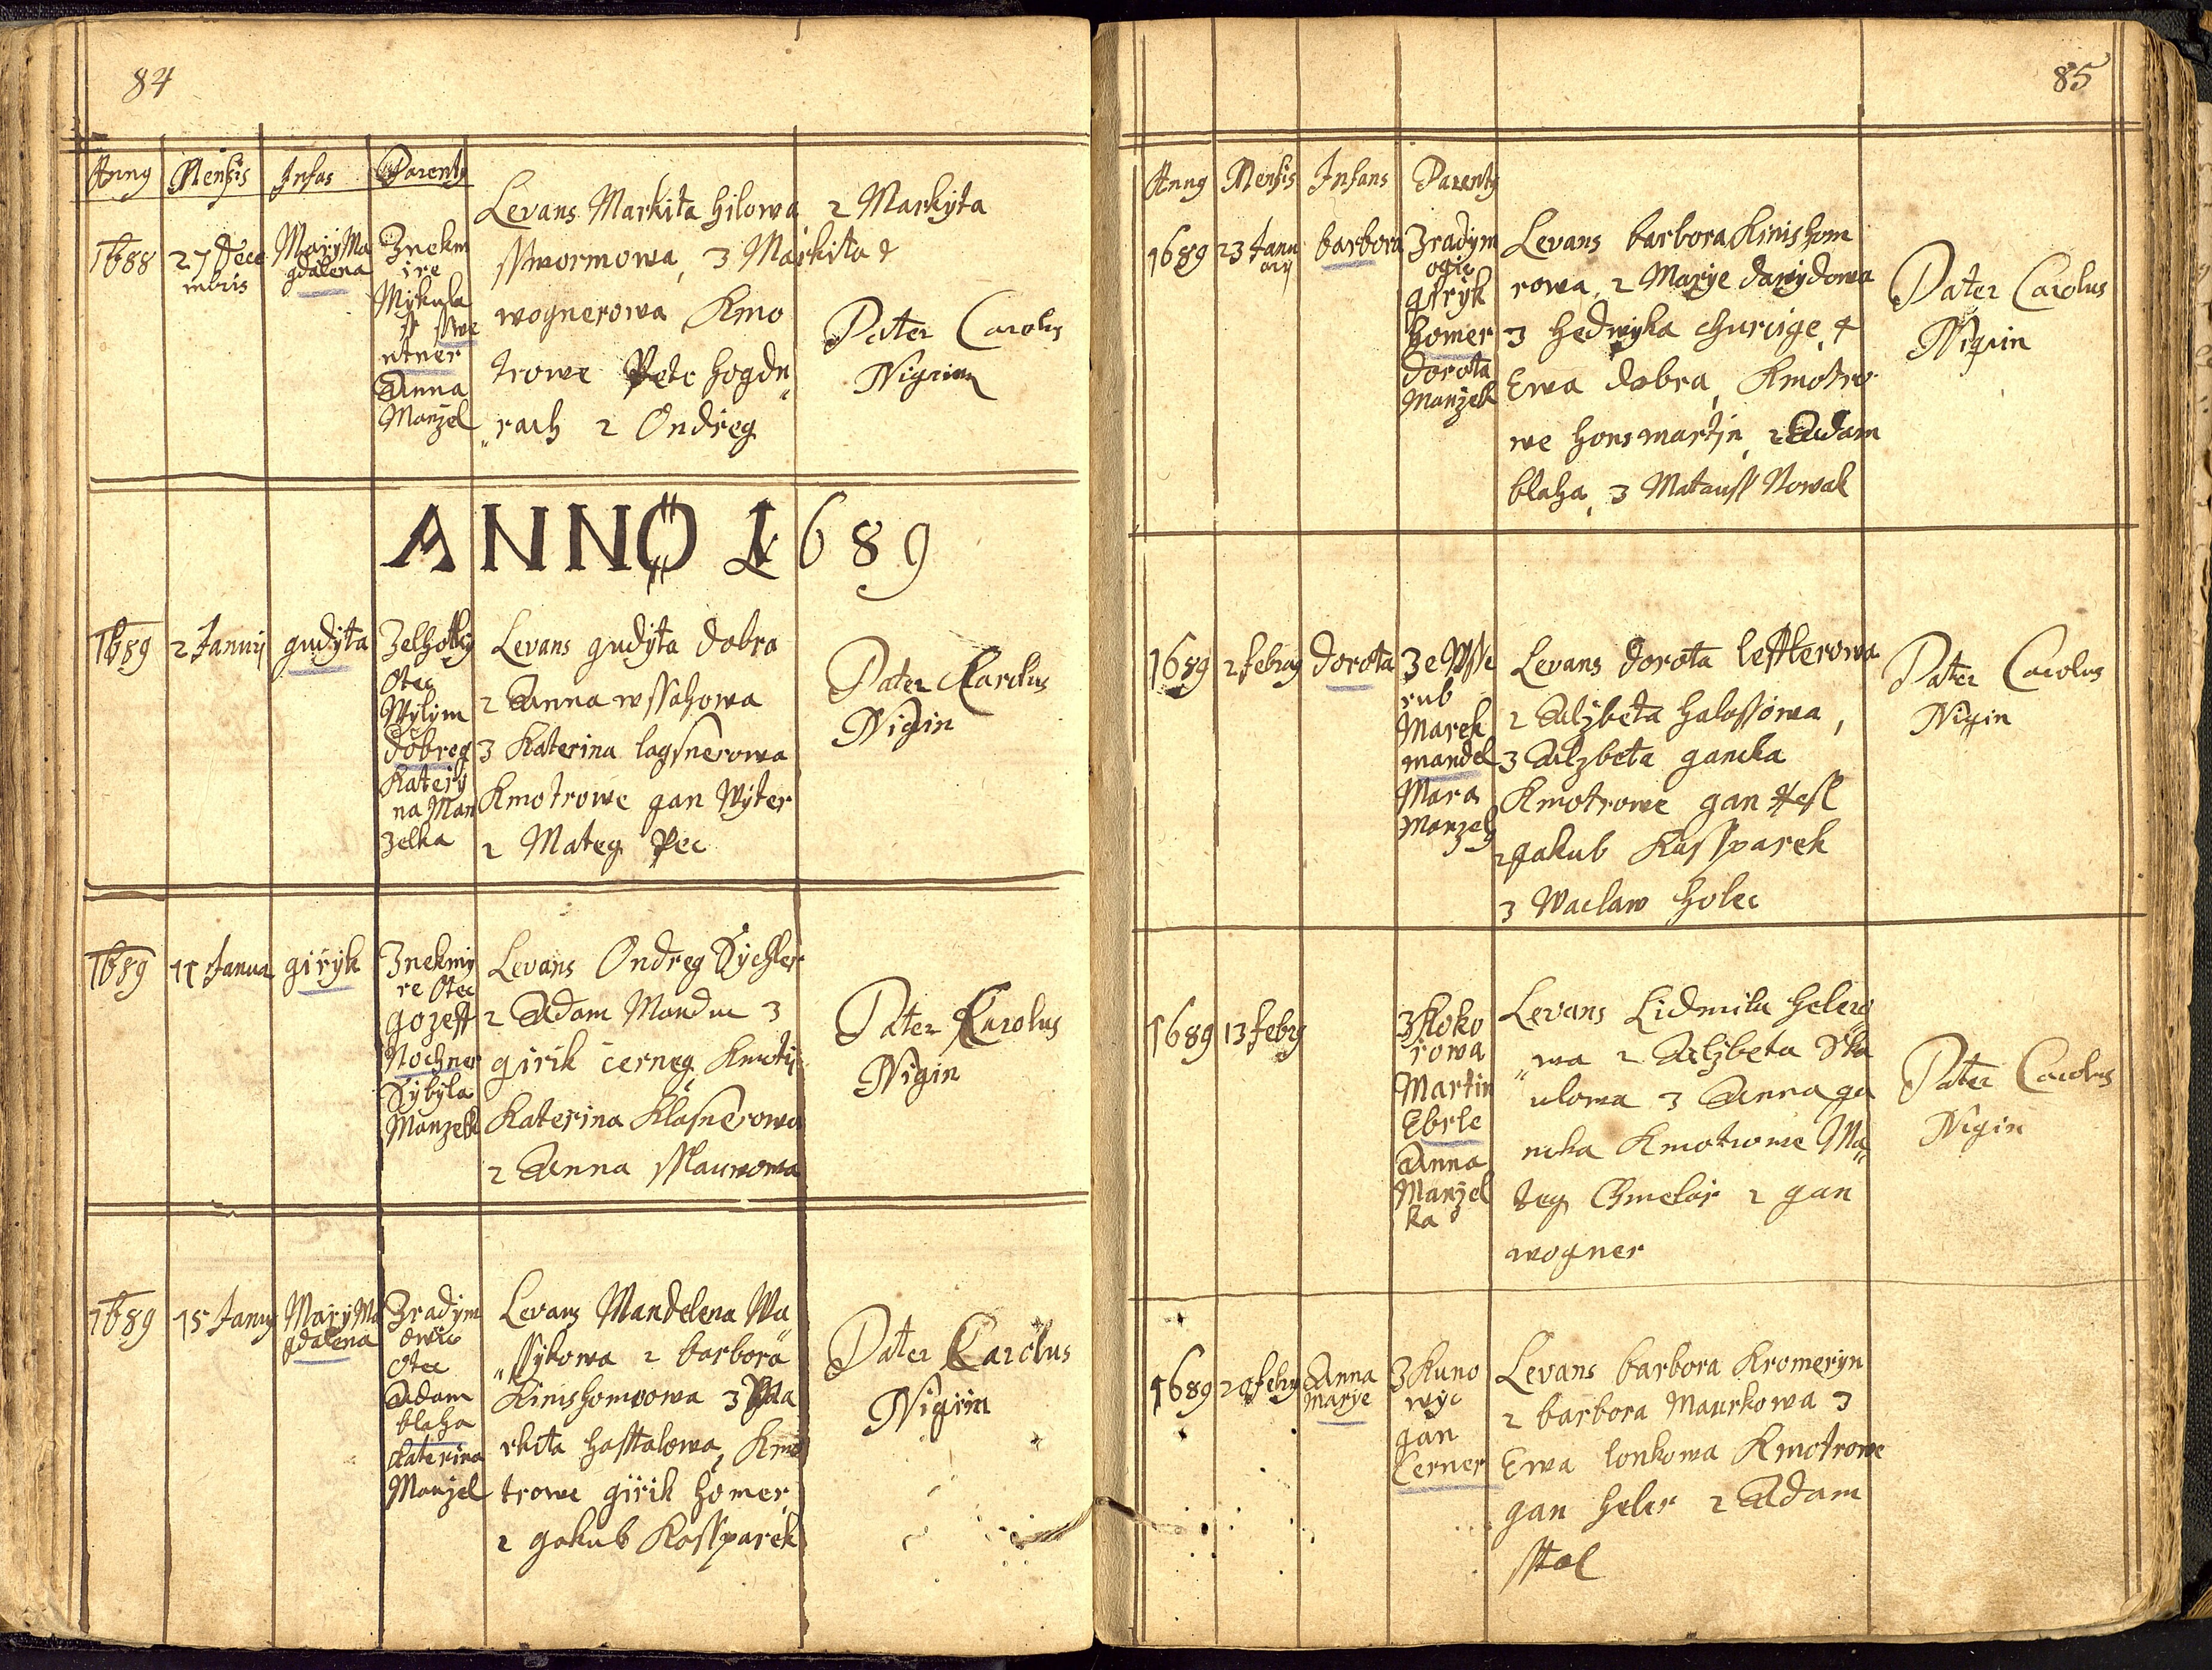 84
Anny Mensis Infas Parenty
1688 27 Dece
mbris
Mary Ma
gdalena
Znekm
ire
Mykula
ss sswe
ntner
Anna
Manzel
Levans Markita hilowa 2 Markyta
sstwormowa, 3 Markita
wognerowa Kmo
trowe Petr hogdn
rach 2 Ondreg
Pater Carolus
Nigrin
ANNO 1689
1689 2 Januy gudyta
Zelhotky
Otec
Wylym
dobreg
Katery
na Man
zelka
Levans gudyta dobra
2 Anna wssahowa
3 Katerina lagsnerowa
Kmotrowe gan Wyter
2 Mateg Pec
Pater Carolus
Nigin
1689 11 Janua giryk
Znekmy
re Otec
gozeff
Nochner
Zybyla
Manzelk
Levans Ondreg Zychler
2 Adam Mandu 3
girik cerneg Kmoti
Katerina Klasnerowa
2 Anna
Pater Carolus
Nigin
1689 15 Janny
Mary Ma
gdalena
Zradym
owic
Otec
Adam
blaha
Katerina
Manzel
Levans Mandelena Wa
ssykowa 2 barbora
Kinishomrowa 3 Ma
rkita hasstalowa, Kmo
trowe girik homer,
2 gakub Kassparek
Pater Carolus
Nigrin
85
Anny Mensis Infans Parenty
1689 23 Janu
ary
barbora
Zradym
ogic
giryk
homer
dorota
Manzelk
Levans barbora Kinishom
rowa, 2 Marye dawydowa
3 hedwyka churige, 4
Ewa dobra, Kmotro
we hons martin, 2 Adam
blaha, 3 Matauss Nowak
Pater Carolus
Nigrin
1689 2 febray dorota
Ze Wsse
rub
Marek
mandel
Mara
Manzelg
Levans dorota lefflerowa
2 Alzbeta halassowa,
3 Alzbeta gancka
Kmotrowe gan
2 gakub Kassparek
3 Waclaw holec
Pater Carolus
Nigin
1689 13 febry
Zkoko
rowa
Martin
Ebrle
Anna
Manzel
ka
Levans Lidmila helero
wa 2 Alzbeta Ska
ulowa 3 Anna ga
ncka Kmotrowe Ma
teg Chmelar 2 gan
wogner
Pater Carolus
Nigin
1689 20 febry
Anna
Marye
Zkuno
wyc
gan
Cerner
Levans barbora Kromeryn
2 barbora Maurkowa 3
Ewa lonkowa Kmotrowe
gan heler 2 Adam
sstal